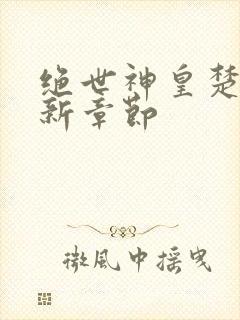 绝世神皇楚
新章节
微風中摇曳